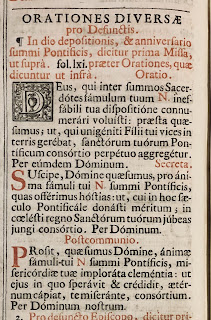 ORATIONES DIVERSÆ
pro Defunctis.
¶ In die depositionis, & anniversario
summi Pontificis, dicitur prima Missa,
ut suprà fol. lxi. præter Orationes, quæ
dicuntur ut infrà. Oratio.
DEus, qui inter summos Sacer-
dótes fámulum tuum N. inef-
fábili tua dispositióne connu-
merári voluísti: præsta quæ-
sumus; ut, qui unigéniti Fílii tui vices in
terris gerébat, sanctórum tuórum Pon-
tíficum consórtio perpétuo aggregétur.
Per eúmdem Dóminum. Secreta.
SUscipe, Dómine quæsumus, pro áni-
ma fámuli tui N. summi Pontíficis,
quas offérimus hóstias: ut, cui in hoc sæ-
culo Pontificále donásti méritum; in
cœlésti regno Sanctórum tuórum júbeas
jungi consórtio. Per Dóminum.
Postcommunio.
PRosit, quæsumus Dómine, ánimæ
fámuli tui N. summi Pontíficis, mi-
sericórdiæ tuæ imploráta cleméntia: ut
ejus in quo sperávit & crédidit, ætér-
num cápiat, te miseránte, consórtium.
Per Dóminum nostrum.
2. Pro defuncto Episcopo, dicitur pri-